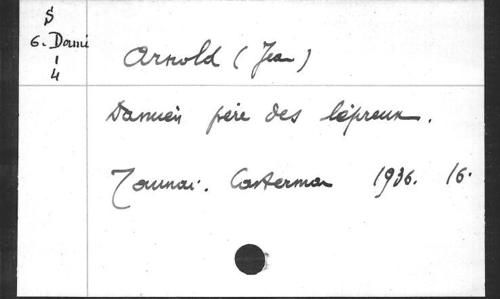 S
6. Dami
1
4
Arnold (Jean)
Damien père des lépreux.
Tournai. Casterman 1936. 16.